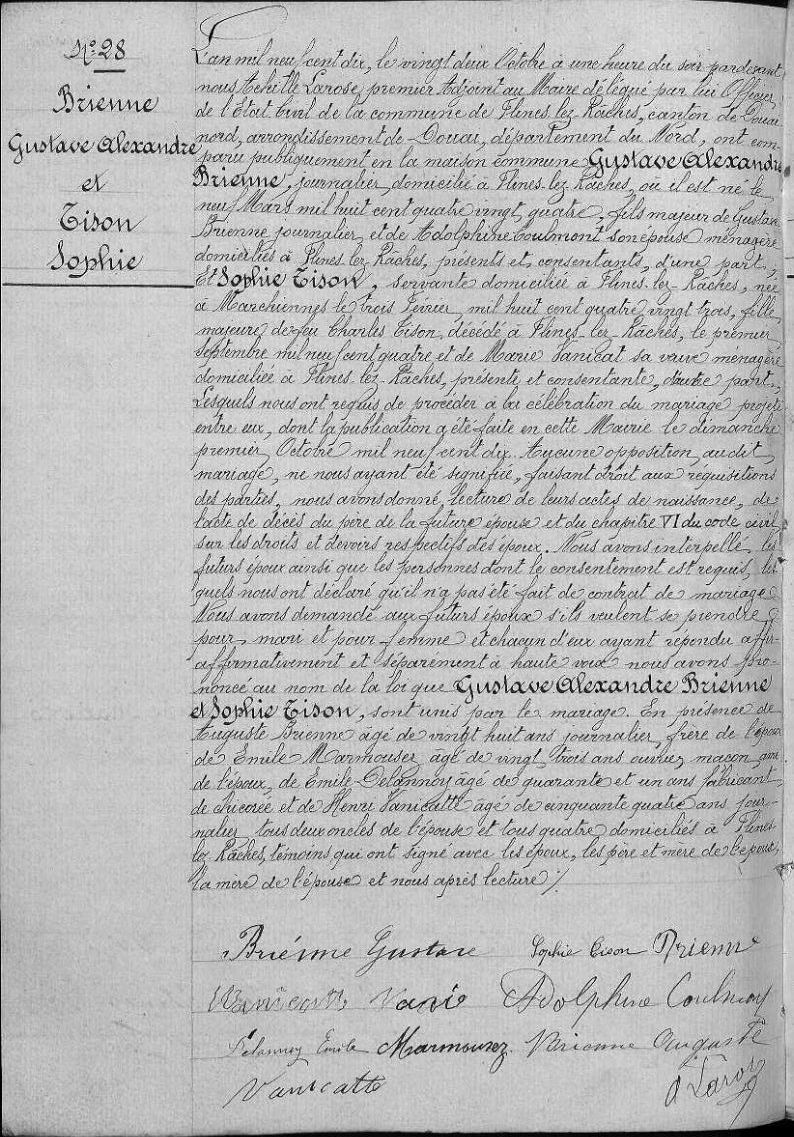 N° 28
Brienne
Gustave Alexandre
et
Tison
Sophie
L'an mil neuf cent dix, le vingt deux Octobre à une heure du soir pardevant
nous Achille Larose, premier Adjoint au Maire délégué par lui Officier
de l'Etat Civil de la commune de Flines-lez-Râches, canton de Douai
nord, arrondissement de Douai, département du Nord, ont com-
paru publiquement en la maison commune Gustave Alexandre
Brienne, journalier domicilié à Flines-lez-Râches, où il est né le
neuf Mars mil huit cent quatre vingt quatre, fils majeur de Gustave
Brienne journalier et de Adolphine Coulmont son épouse ménagère
domiciliés à Flines-lez-Râches, présents et consentants, d'une part,
Et Sophie Tison, servante domiciliée à Flines-lez-Râches, née
à Marchiennes le trois Février mil huit cent quatre vingt trois, fille
majeure de feu Charles Tison, décédé à Flines-lez-Râches, le premier
Septembre mil neuf cent quatre et de Marie Vanicat sa veuve ménagère
domiciliée à Flines-lez-Râches, présente et consentante, d'autre part.
Lesquels nous ont requis de procéder à la célébration du mariage projeté
entre eux, dont la publication a été faite en cette Mairie le dimanche
premier Octobre mil neuf cent dix. Aucune opposition audit
mariage, ne nous ayant été signifiée, faisant droit aux réquisitions
des parties, nous avons donné lecture de leurs actes de naissance, de
l'acte de décès du père de la future épouse et du chapitre VI du code civil
sur les droits et devoirs respectifs des époux. Nous avons interpellé les
futurs époux ainsi que les personnes dont le consentement est requis, les
quels nous ont déclaré qu'il n'a pas été fait de contrat de mariage
Nous avons demandé aux futurs époux s'ils veulent se prendre
pour mari et pour femme et chacun d'eux ayant répondu affir-
affirmativement et séparément à haute voix nous avons pro-
noncé au nom de la loi que Gustave Alexandre Brienne
et Sophie Tison, sont unis par le mariage. En présence de
Auguste Brienne âgé de vingt huit ans journalier, frère de l'époux
de Emile Marmousez âgé de vingt trois ans ouvrier maçon, ami
de l'époux, de Emile Delannoy âgé de quarante et un ans fabricant
de chicorée et de Henri Vanicatte âgé de cinquante quatre ans jour-
nalier tous deux oncles de l'épouse et tous quatre domiciliés à Flines
lez Râches, témoins qui ont signé avec les époux, les père et mère de l'époux,
la mère de l'épouse et nous après lecture ./.
Briénne Gustave Sophie Tison Brienne
Adolphine Coulmont
Delannoy Emile Marmousez Brienne Auguste
Vanicatte A Larose